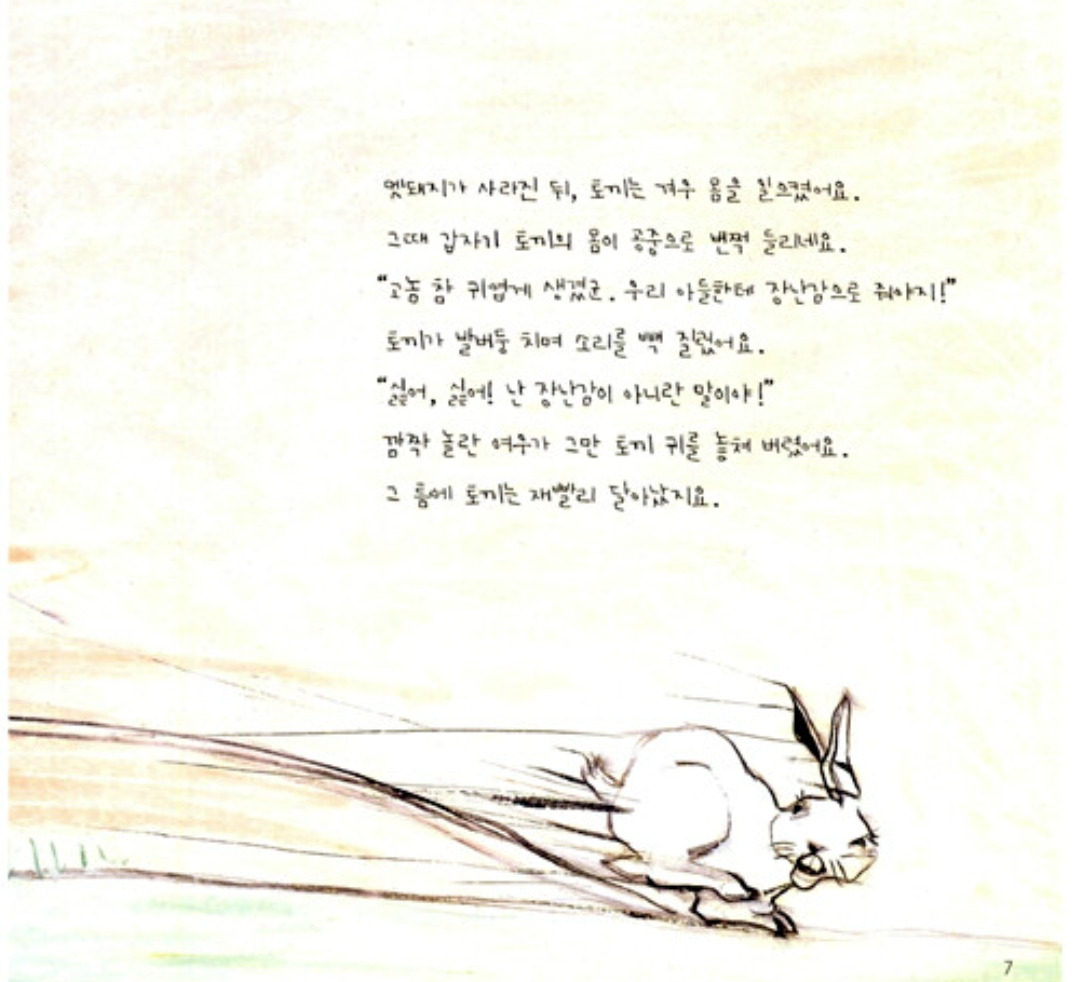 멧돼지가 사라진 뒤, 토끼는 겨우 몸을 일으켰어요.
그때 갑자기 토끼의 몸이 공중으로 번쩍 들리네요.
“고놈 참 귀엽게 생겼군. 우리 아들한테 장난감으로 줘야지!”
토끼가 발버둥 치며 소리를 빽 질렀어요.
“싫어, 싫어! 난 장난감이 아니란 말이야!”
깜짝 놀란 여우가 그만 토끼 귀를 놓쳐 버렸어요.
그 틈에 토끼는 재빨리 달아났지요.
7